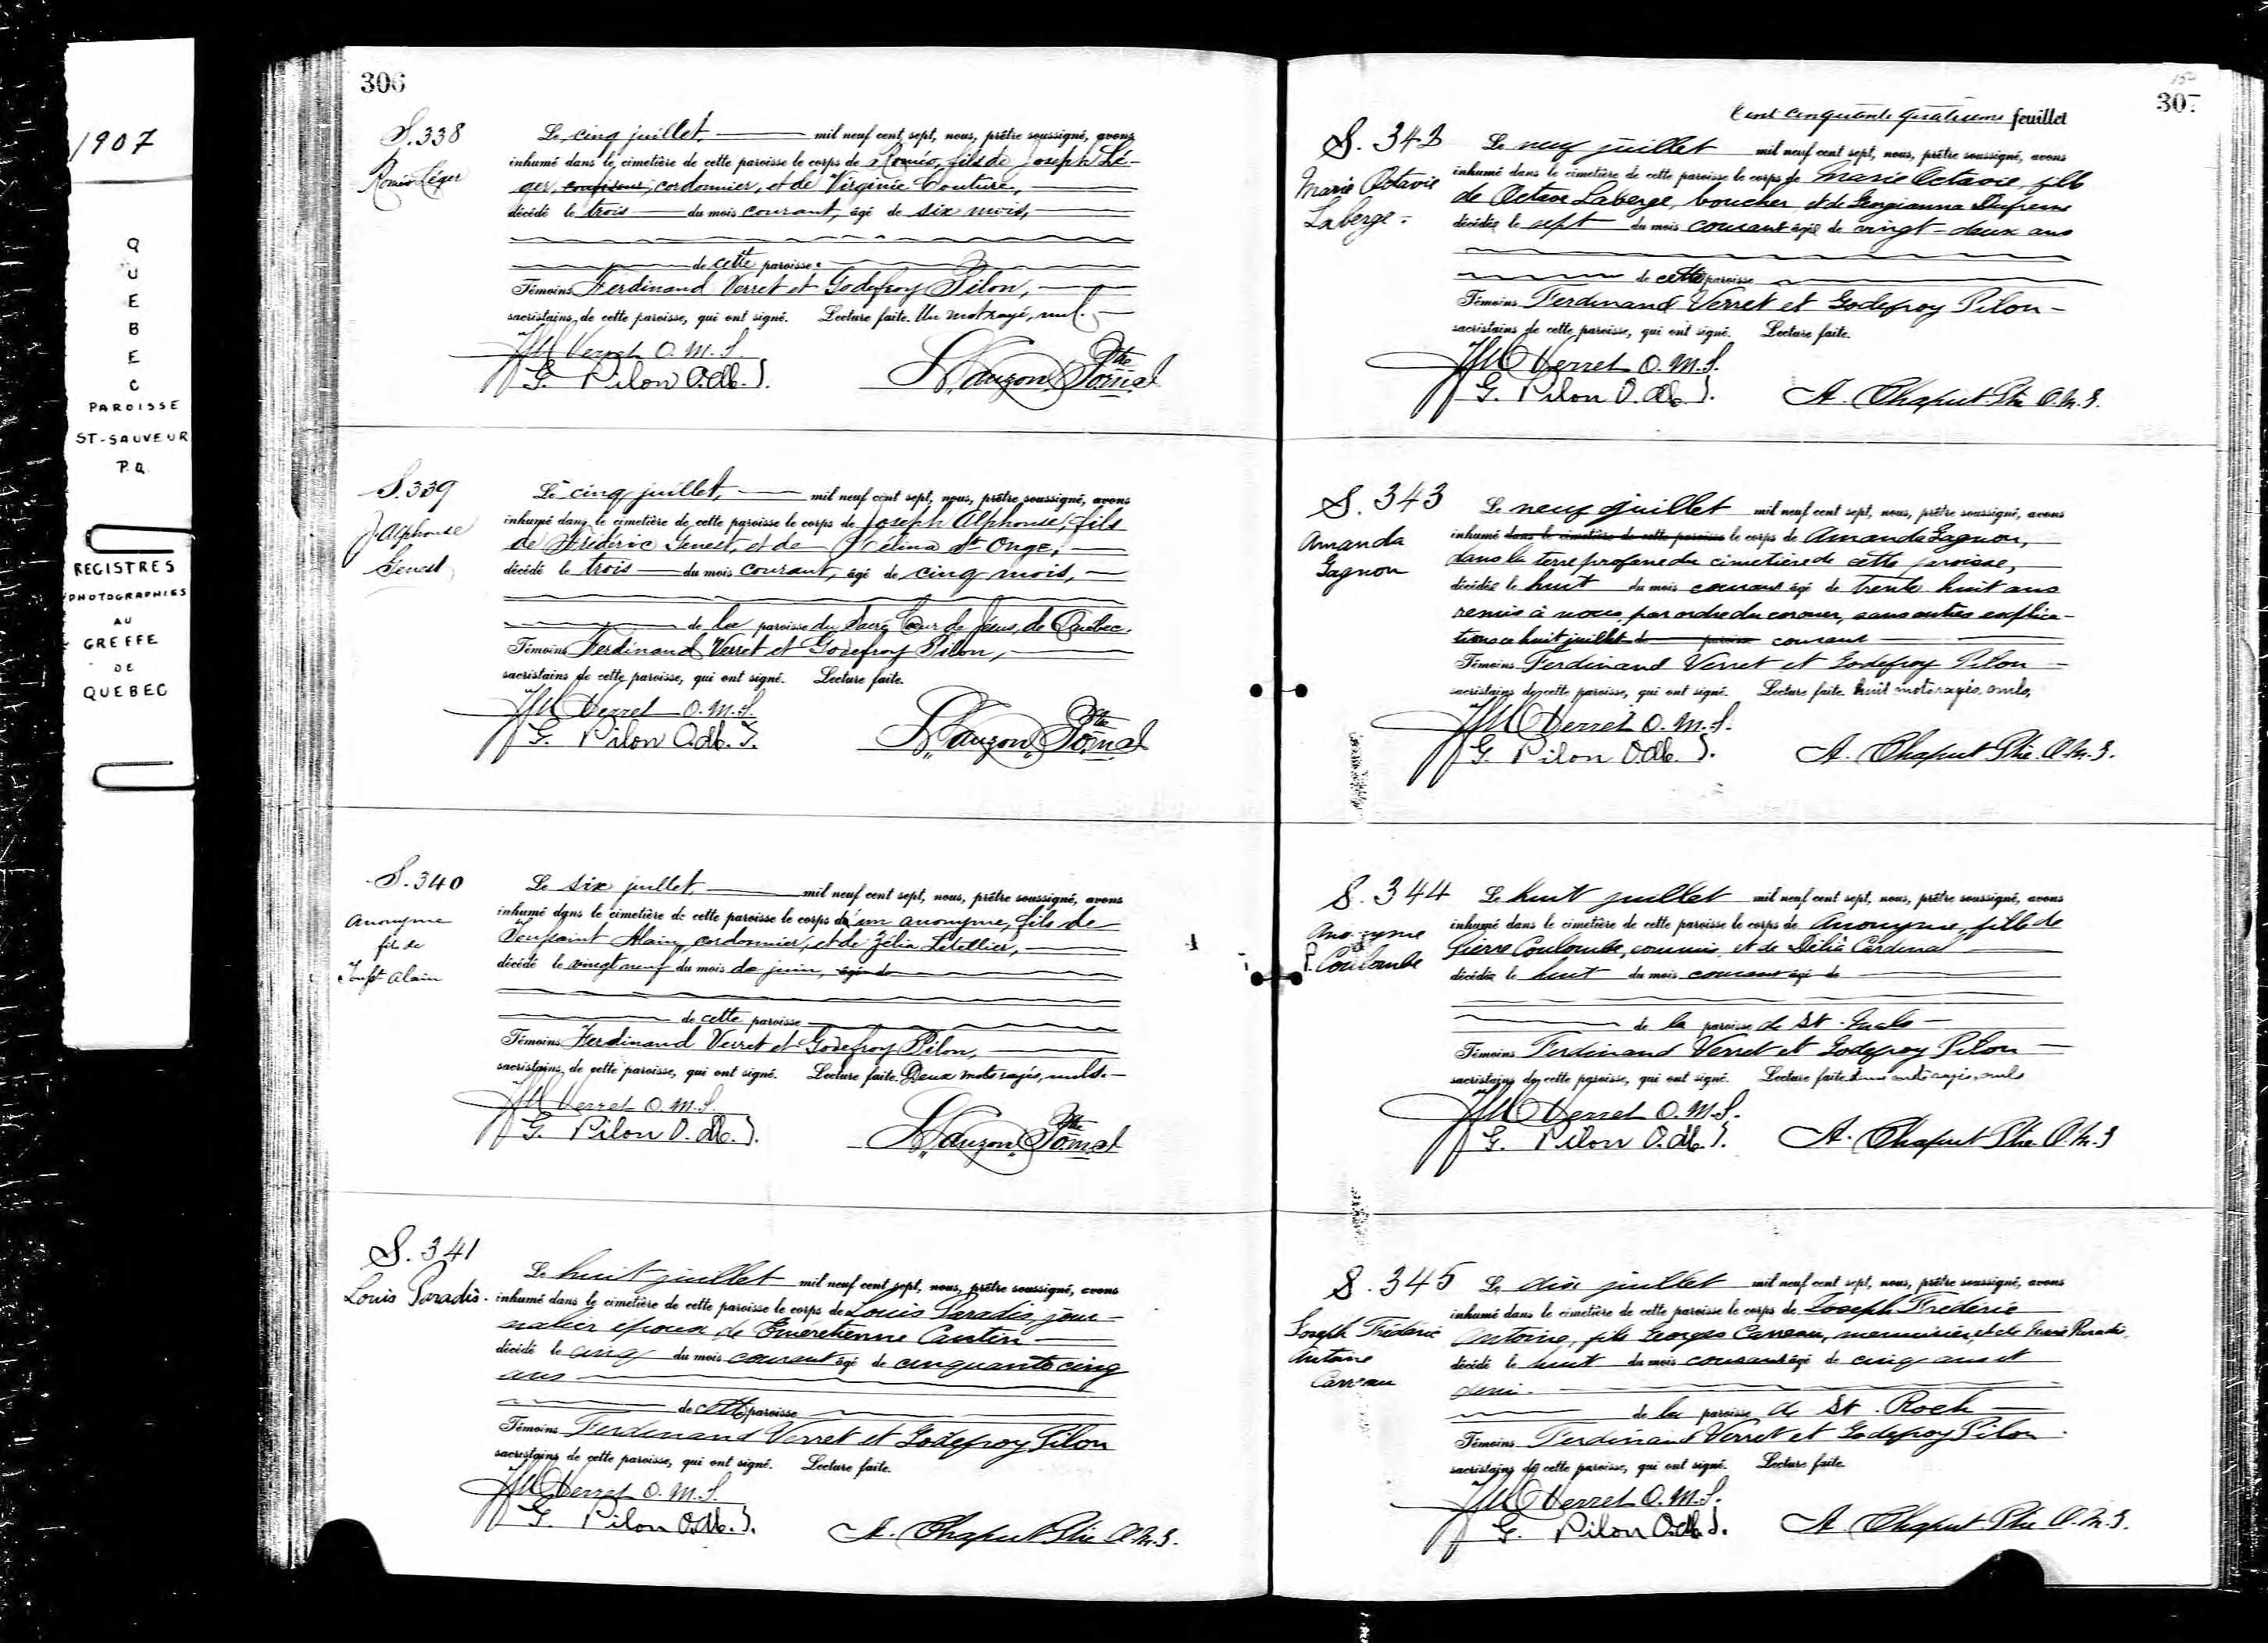 1907
QUEBEC
PAROISSE
ST-SAUVEUR
P.Q.
REGISTRES
PHOTOGRAPHIES
AU
GREFFE
DE
QUEBEC
306
S. 338
Roméo Léger
Le cinq juillet, mil neuf cent sept, nous, prêtre soussigné, avons
inhumé dans le cimetière de cette paroisse le corps de Roméo, fils de Joseph Lé-
ger, cordonnier, et de Virginie Couture,
décédé le trois du mois courant, âgé de six mois,
de cette paroisse.
Témoins Ferdinand Verret et Godefroy Pilon,
sacristains de cette paroisse, qui ont signé. Lecture faite. Un mot rayé, nul.
Verret O.M.I.
G. Pilon O.M.I.
Lauzon Ptre O.M.I.
S. 339
J. Alphonse
Genest
Le cinq juillet, mil neuf cent sept, nous, prêtre soussigné, avons
inhumé dans le cimetière de cette paroisse le corps de Joseph Alphonse, fils
de Frédéric Genest, et de Célina St Onge,
décédé le trois du mois courant, âgé de cinq mois,
de la paroisse du Sacré Cœur de Jésus, de Québec.
Témoins Ferdinand Verret et Godefroy Pilon,
sacristains de cette paroisse, qui ont signé. Lecture faite.
Verret O.M.I.
G. Pilon O.M.I.
Lauzon Ptre O.M.I.
S. 340
Anonyme
fils de
Toust Alain
Le six juillet, mil neuf cent sept, nous, prêtre soussigné, avons
inhumé dans le cimetière de cette paroisse le corps d'un anonyme, fils de
Toussaint Alain, cordonnier, et de Zélia Letellier,
décédé le vingt neuf du mois de juin, âgé de
de cette paroisse
Témoins Ferdinand Verret et Godefroy Pilon,
sacristains de cette paroisse, qui ont signé. Lecture faite. Deux mots rayés, nuls.
Verret O.M.I.
G. Pilon O.M.I.
Lauzon Ptre O.M.I.
S. 341
Louis Paradis.
Le huit juillet mil neuf cent sept, nous, prêtre soussigné, avons
inhumé dans le cimetière de cette paroisse le corps de Louis Paradis, jour-
nalier époux de Emérétienne Cantin
décédé le cinq du mois courant âgé de cinquante cinq
ans
de cette paroisse
Témoins Ferdinand Verret et Godefroy Pilon
sacristains de cette paroisse, qui ont signé. Lecture faite.
Verret O.M.I.
G. Pilon O.M.I.
A. Chaput Ptre O.M.I.
307
Cent cinquante quatrième feuillet
S. 342
Marie Octavie
Laberge
Le neuf juillet mil neuf cent sept, nous, prêtre soussigné, avons
inhumé dans le cimetière de cette paroisse le corps de Marie Octavie, fille
de Octave Laberge, boucher, et de Georgianna Dufresne
décédée le sept du mois courant âgée de vingt-deux ans
de cette paroisse
Témoins Ferdinand Verret et Godefroy Pilon
sacristains de cette paroisse, qui ont signé. Lecture faite.
Verret O.M.I.
G. Pilon O.M.I.
A. Chaput Ptre O.M.I.
S. 343
Amanda
Gagnon
Le neuf juillet mil neuf cent sept, nous, prêtre soussigné, avons
inhumé dans le cimetière de cette paroisse le corps de Amanda Gagnon,
dans la terre profane du cimetière de cette paroisse,
décédée le huit du mois courant âgé de trente huit ans
remis à nous, par ordre du coroner, sans autres explica-
tions ce huit juillet de paroisse courant
Témoins Ferdinand Verret et Godefroy Pilon
sacristains de cette paroisse, qui ont signé. Lecture faite. huit mots rayés, nuls,
Verret O.M.I.
G. Pilon O.M.I.
A. Chaput Ptre O.M.I.
S. 344
Anonyme
P. Coulombe
Le huit juillet mil neuf cent sept, nous, prêtre soussigné, avons
inhumé dans le cimetière de cette paroisse le corps de Anonyme, fille de
Pierre Coulombe, commis, et de Délia Cardinal
décédée le huit du mois courant âgé de
de la paroisse de St.
Témoins Ferdinand Verret et Godefroy Pilon
sacristains de cette paroisse, qui ont signé. Lecture faite mots rayés, nuls
Verret O.M.I.
G. Pilon O.M.I.
A. Chaput Ptre O.M.I.
S. 345
Joseph Frédéric
Antoine
Carreau
Le dix juillet mil neuf cent sept, nous, prêtre soussigné, avons
inhumé dans le cimetière de cette paroisse le corps de Joseph Frédéric
Antoine, fils Georges Carreau, menuisier, et de Paradis,
décédé le huit du mois courant âgé de cinq ans et
demi.
de la paroisse de St. Roch
Témoins Ferdinand Verret et Godefroy Pilon
sacristains de cette paroisse, qui ont signé. Lecture faite.
Verret O.M.I.
G. Pilon O.M.I.
A. Chaput Ptre O.M.I.